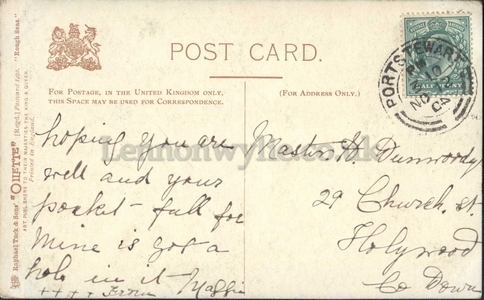 POST CARD.
FOR POSTAGE, IN THE UNITED KINGDOM ONLY,
THIS SPACE MAY BE USED FOR CORRESPONDENCE.
(FOR ADDRESS ONLY.)
hoping you are
well and your
pocket full for
mine is got a
hole in it
++++ From Maggie
Master H. Dunwoody
29 Church. st.
Holywood
Co Down
PORTSTEWART
NO 10
04
HALFPENNY
Raphael Tuck & Sons' "OILETTE" [Regd.] Postcard "Rough Seas."
ART PUBLISHERS TO THEIR MAJESTIES THE KING & QUEEN.
Printed in England.
Lennonwylie.co.uk